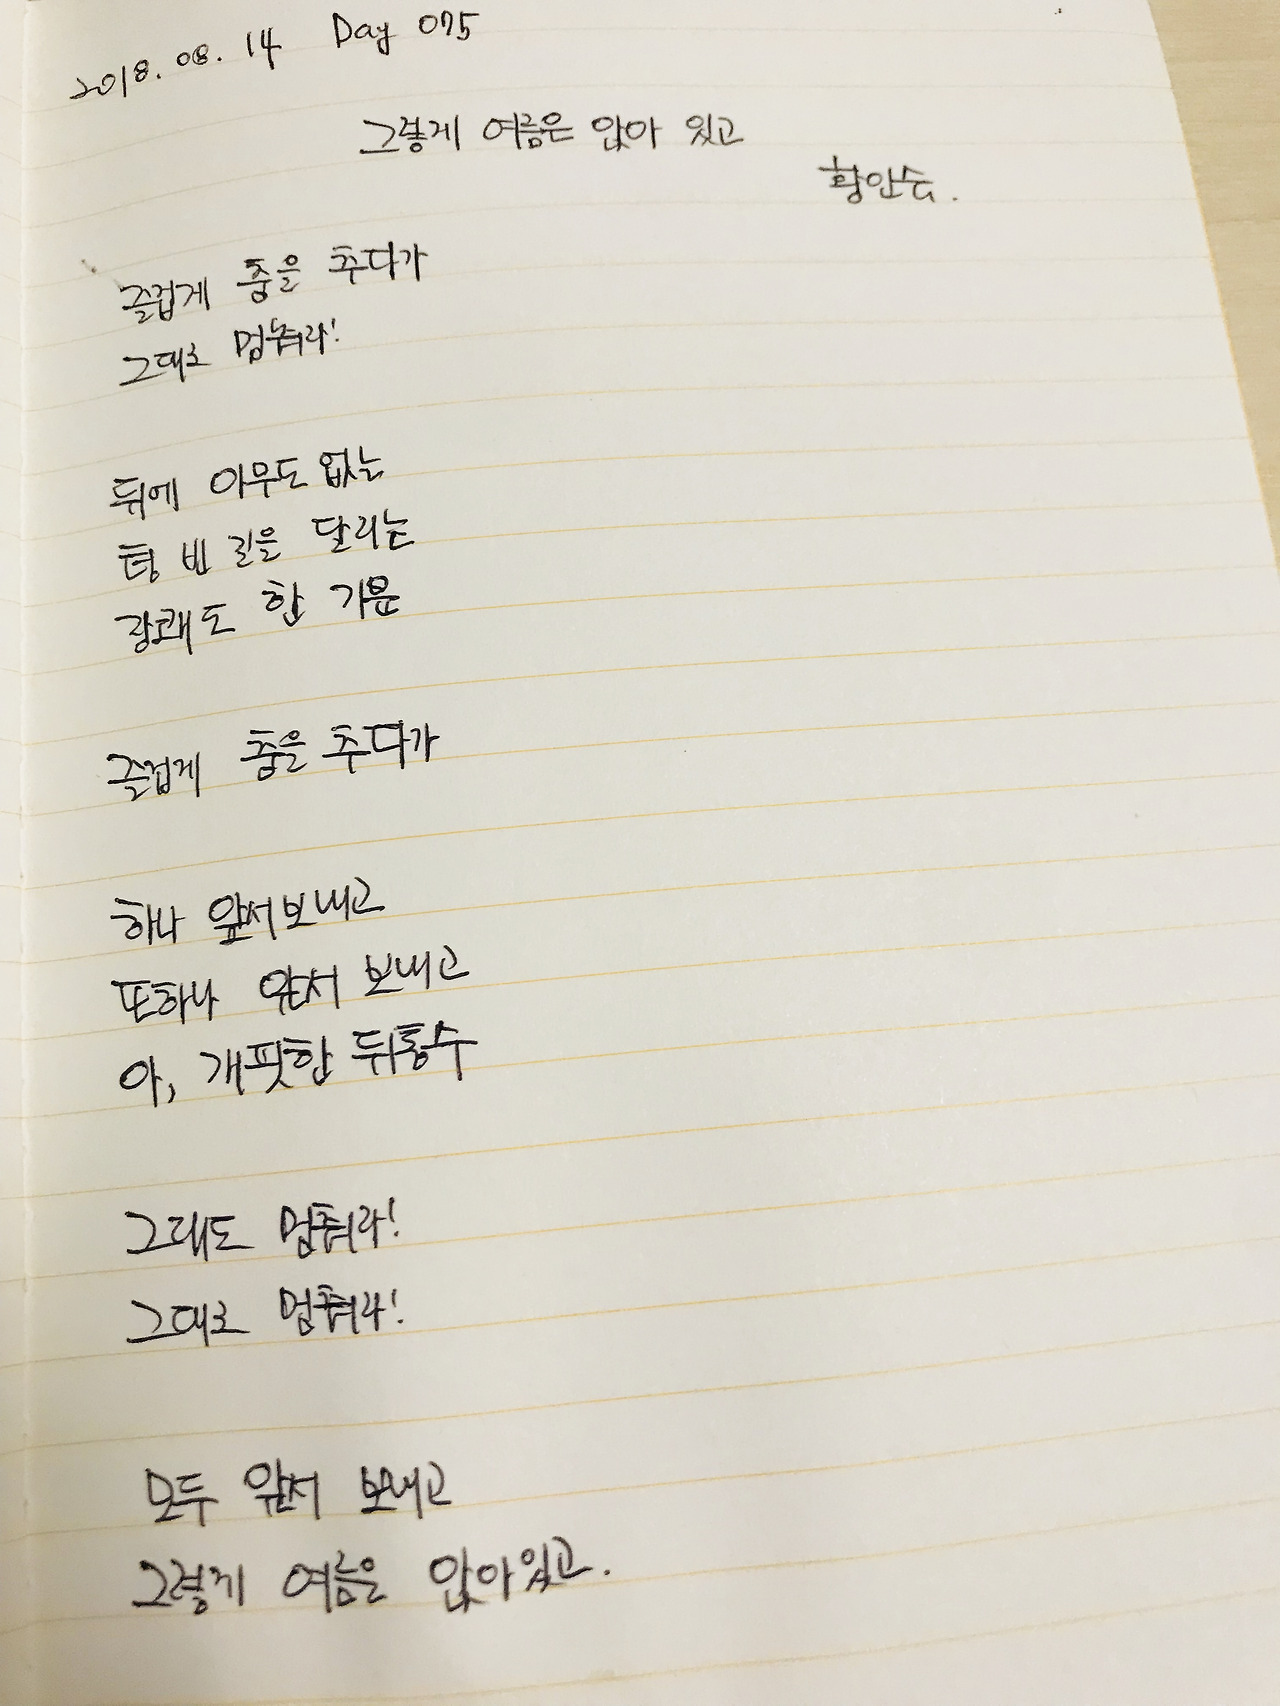 2018.08.14 Day 075
그렇게 여름은 앉아 있고
황인숙.
즐겁게 춤을 추다가
그대로 멈춰라!
뒤에 아무도 없는
텅 빈 길을 달리는
광쾌도 한 기분
즐겁게 춤을 추다가
하나 앞서보내고
또하나 앞서 보내고
아, 개핏한 뒤통수
그대도 멈춰라!
그대로 멈춰라!
모두 앞서 보내고
그렇게 여름은 앉아있고.